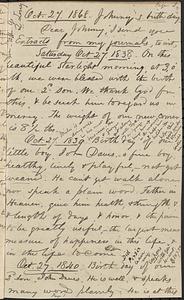 Oct. 27 1868. Johnny's birth day
Dear Johnny, I send you
Extracts from my journals, to wit,
Saturday Oct 27 1838. On this
beautiful starlight morning at 2 o'
ck. we were blessed with the birth
of our 2d Son. We thank God for
this, & beseech him to regard us in
mercy. The weight of our new comer
is 8 ½ lbs.
Oct. 27. 1839 Birth day of our
little boy John Davis, a fine boy
healthy, lively & playful, not yet
weaned. He cant yet walk alone
nor speak a plain word. Father in
Heaven, give him health, strength
& length of days & honor & the power
to be greatly useful, the largest mea-
sure of happiness in this life, &
the life to come
Oct. 27. 1840. Birth day of our
son John Davis. He is well, & speaks
many words plainly. He is at this